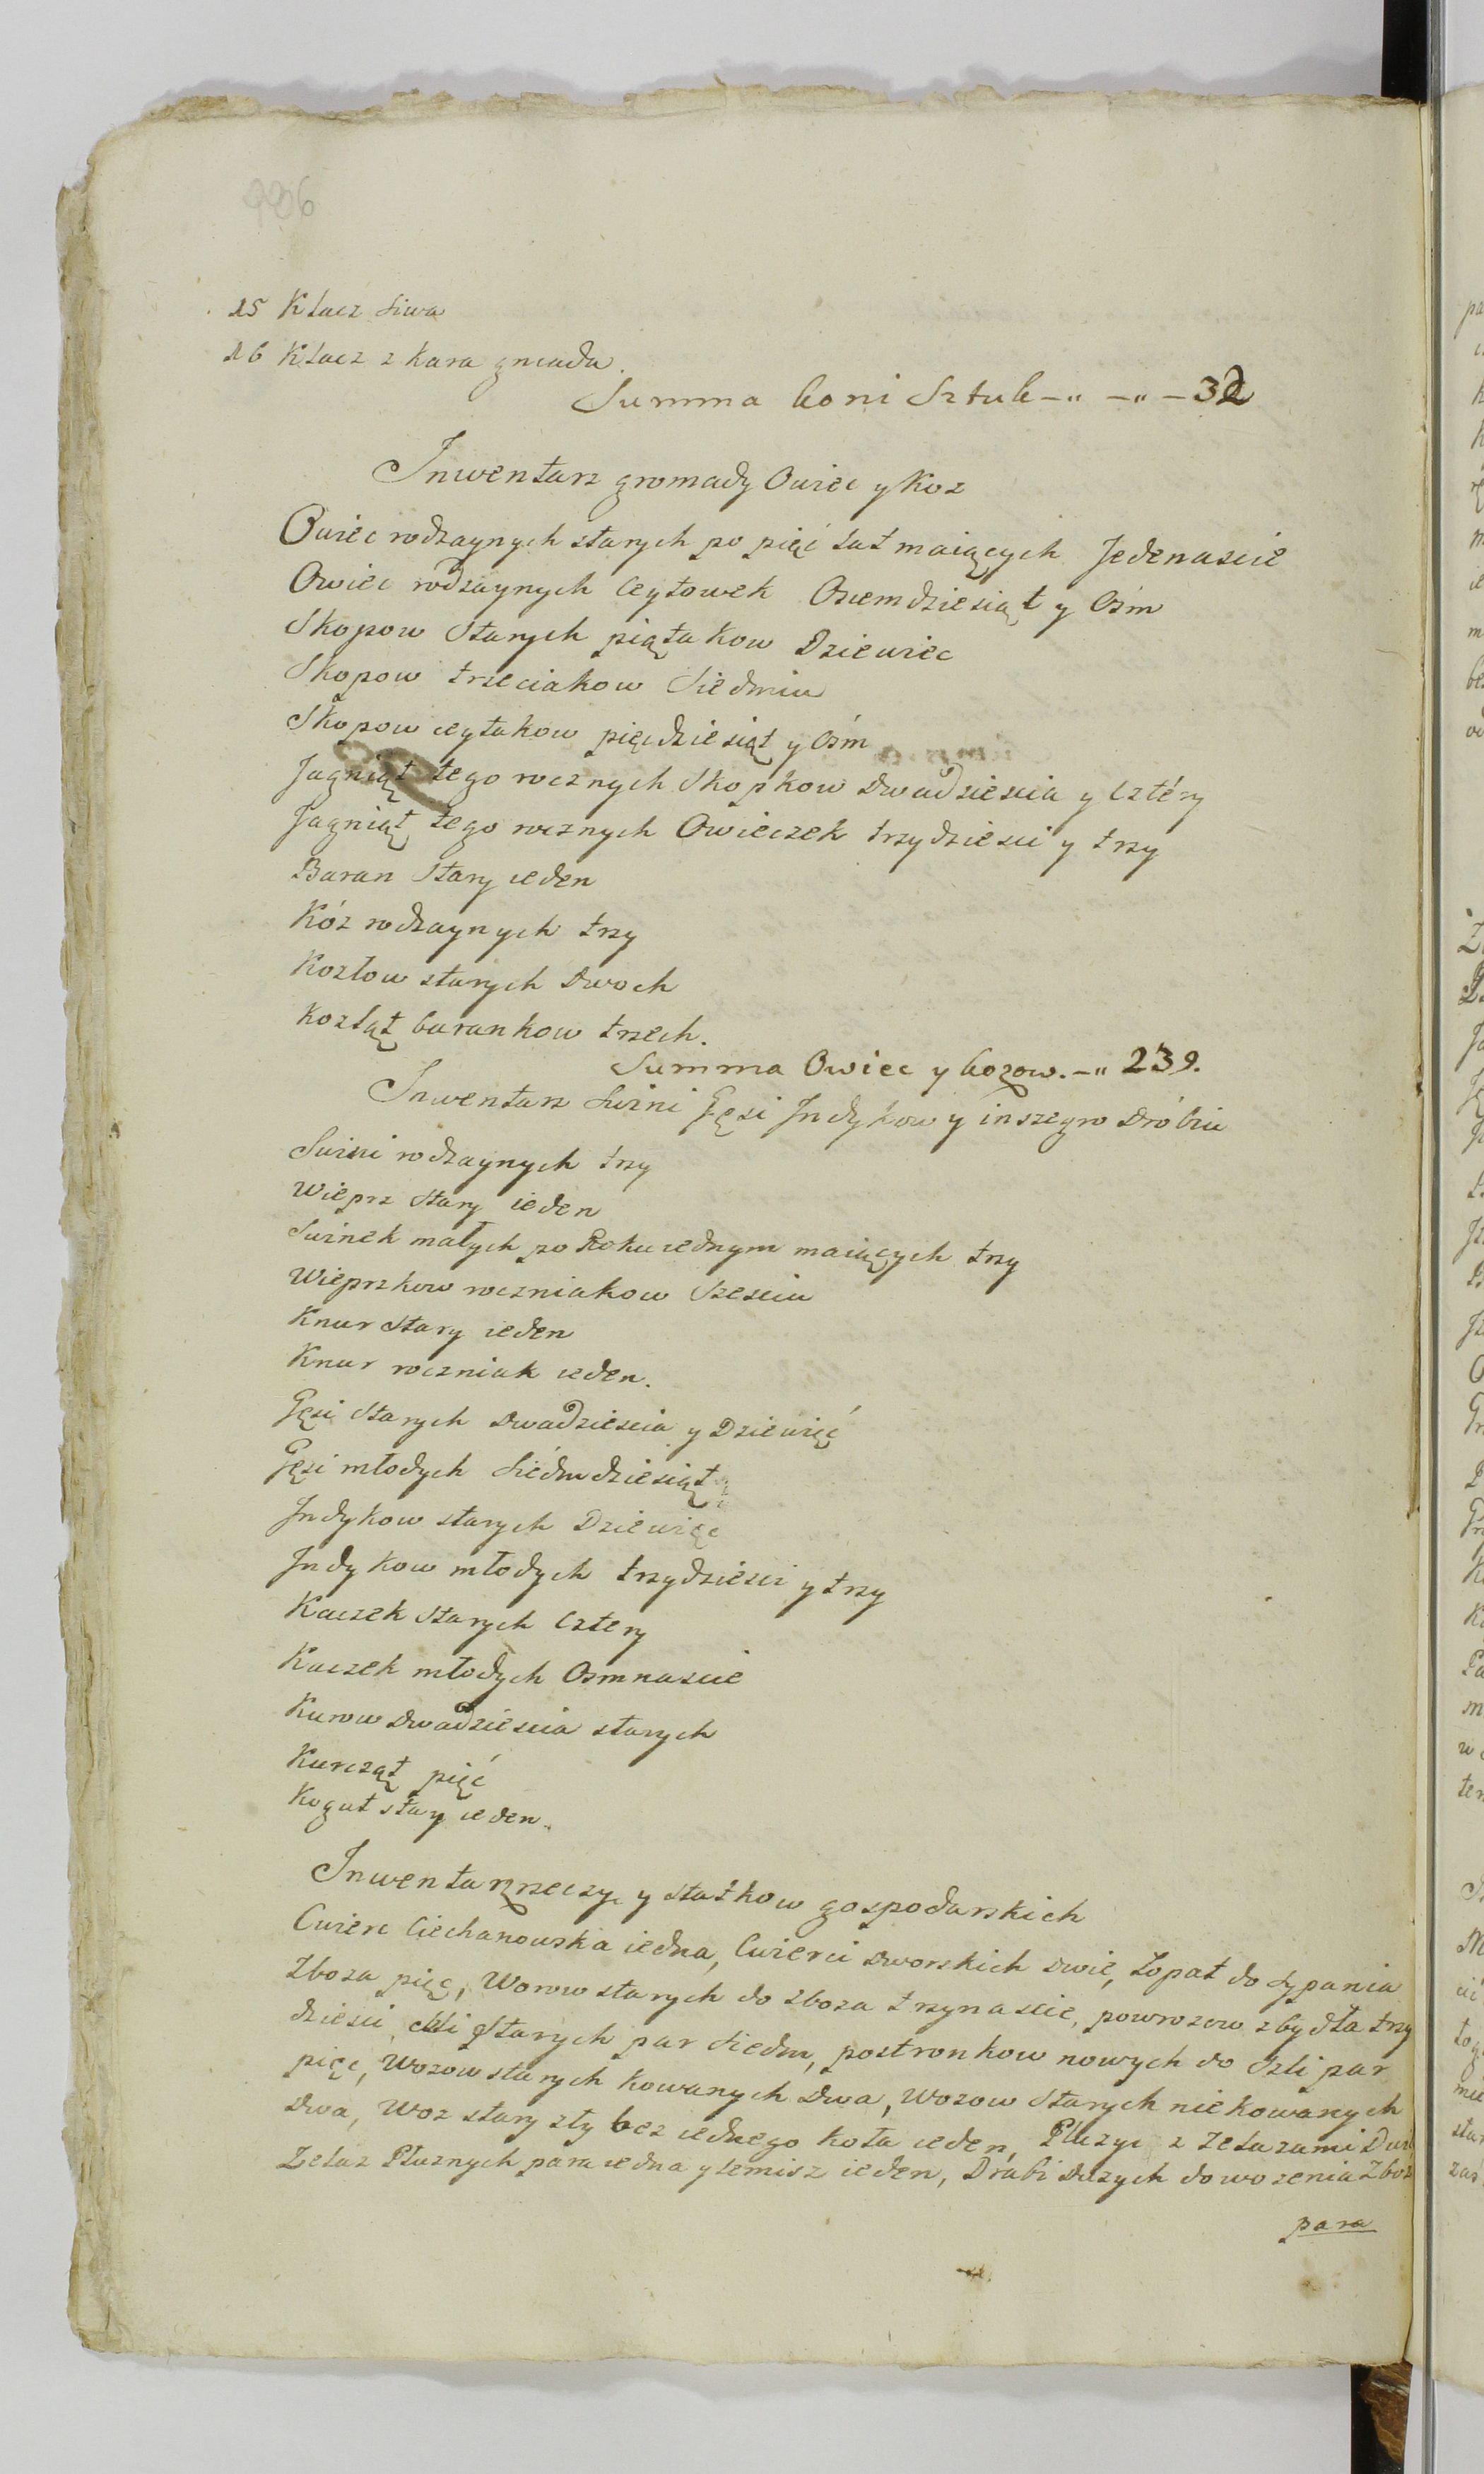 996
15 Klacz siwa
16 Klacz z kara gniada.
Summa koni Sztuk -" -" - 32
Inwentarz gromady Owiec y Koz
Owiec rodzaynych starych po pięć lat maiących Jedenascie
Owiec rodzaynych Ceytowek Osiemdziesiąt y Ośm
Skopow Starych piątakow Dziewiec
Skopow trzeciakow Siedmiu
Skopow ceytakow pięcdziesiąt y Ośm
Jagniąt tego rocznych Skopkow dwadziescia y Cztéry
Jagniąt tego rocznych Owieczek trzydziesci y trzy
Baran Stary ieden
Kóz rodzaynych trzy
Kozłow starych Dwoch
Kozląt barankow trzech.
Summa Owiec y kozow. -" 239.
Inwentarz swini Gęsi Indykow y inszego Dróbiu
Swini rodzaynych trzy
Wieprz Stary ieden
Swinek małych po Roku iednym maiących trzy
Wieprzkow roczniakow Szesciu
Knur Stary ieden
Knur roczniak ieden.
Gęsi Starych Dwadziescia y Dziewięć
Gęsi młodych Siedmdziesiąt
Indykow starych Dziewięc
Indykow młodych trzydziesci y trzy
Kaczek Starych Cztery
Kaczek młodych Osmnascie
Kurow Dwadziescia starych
Kurcząt pięć
Kogut stary ieden.
Inwentarz rzeczy y statkow gospodarskich
Cwierc Ciechanowska iedna, Cwierci Dworskich dwie, Łopat do sypania
Zboza pięc, Worow starych do zboza trzynascie, powrozow z bydła trzy
dziesci, Starych par Siedm, postronkow nowych do Szli par
pięc, Wozow starych Kowanych Dwa, Wozow Starych niekowanych
Dwa, Woz stary zły bez iednego koła ieden, Płuzyc z Zelazami
Zelaz Płuznych para iedna y lemisz ieden, Drabi Duzych do wozenia
para